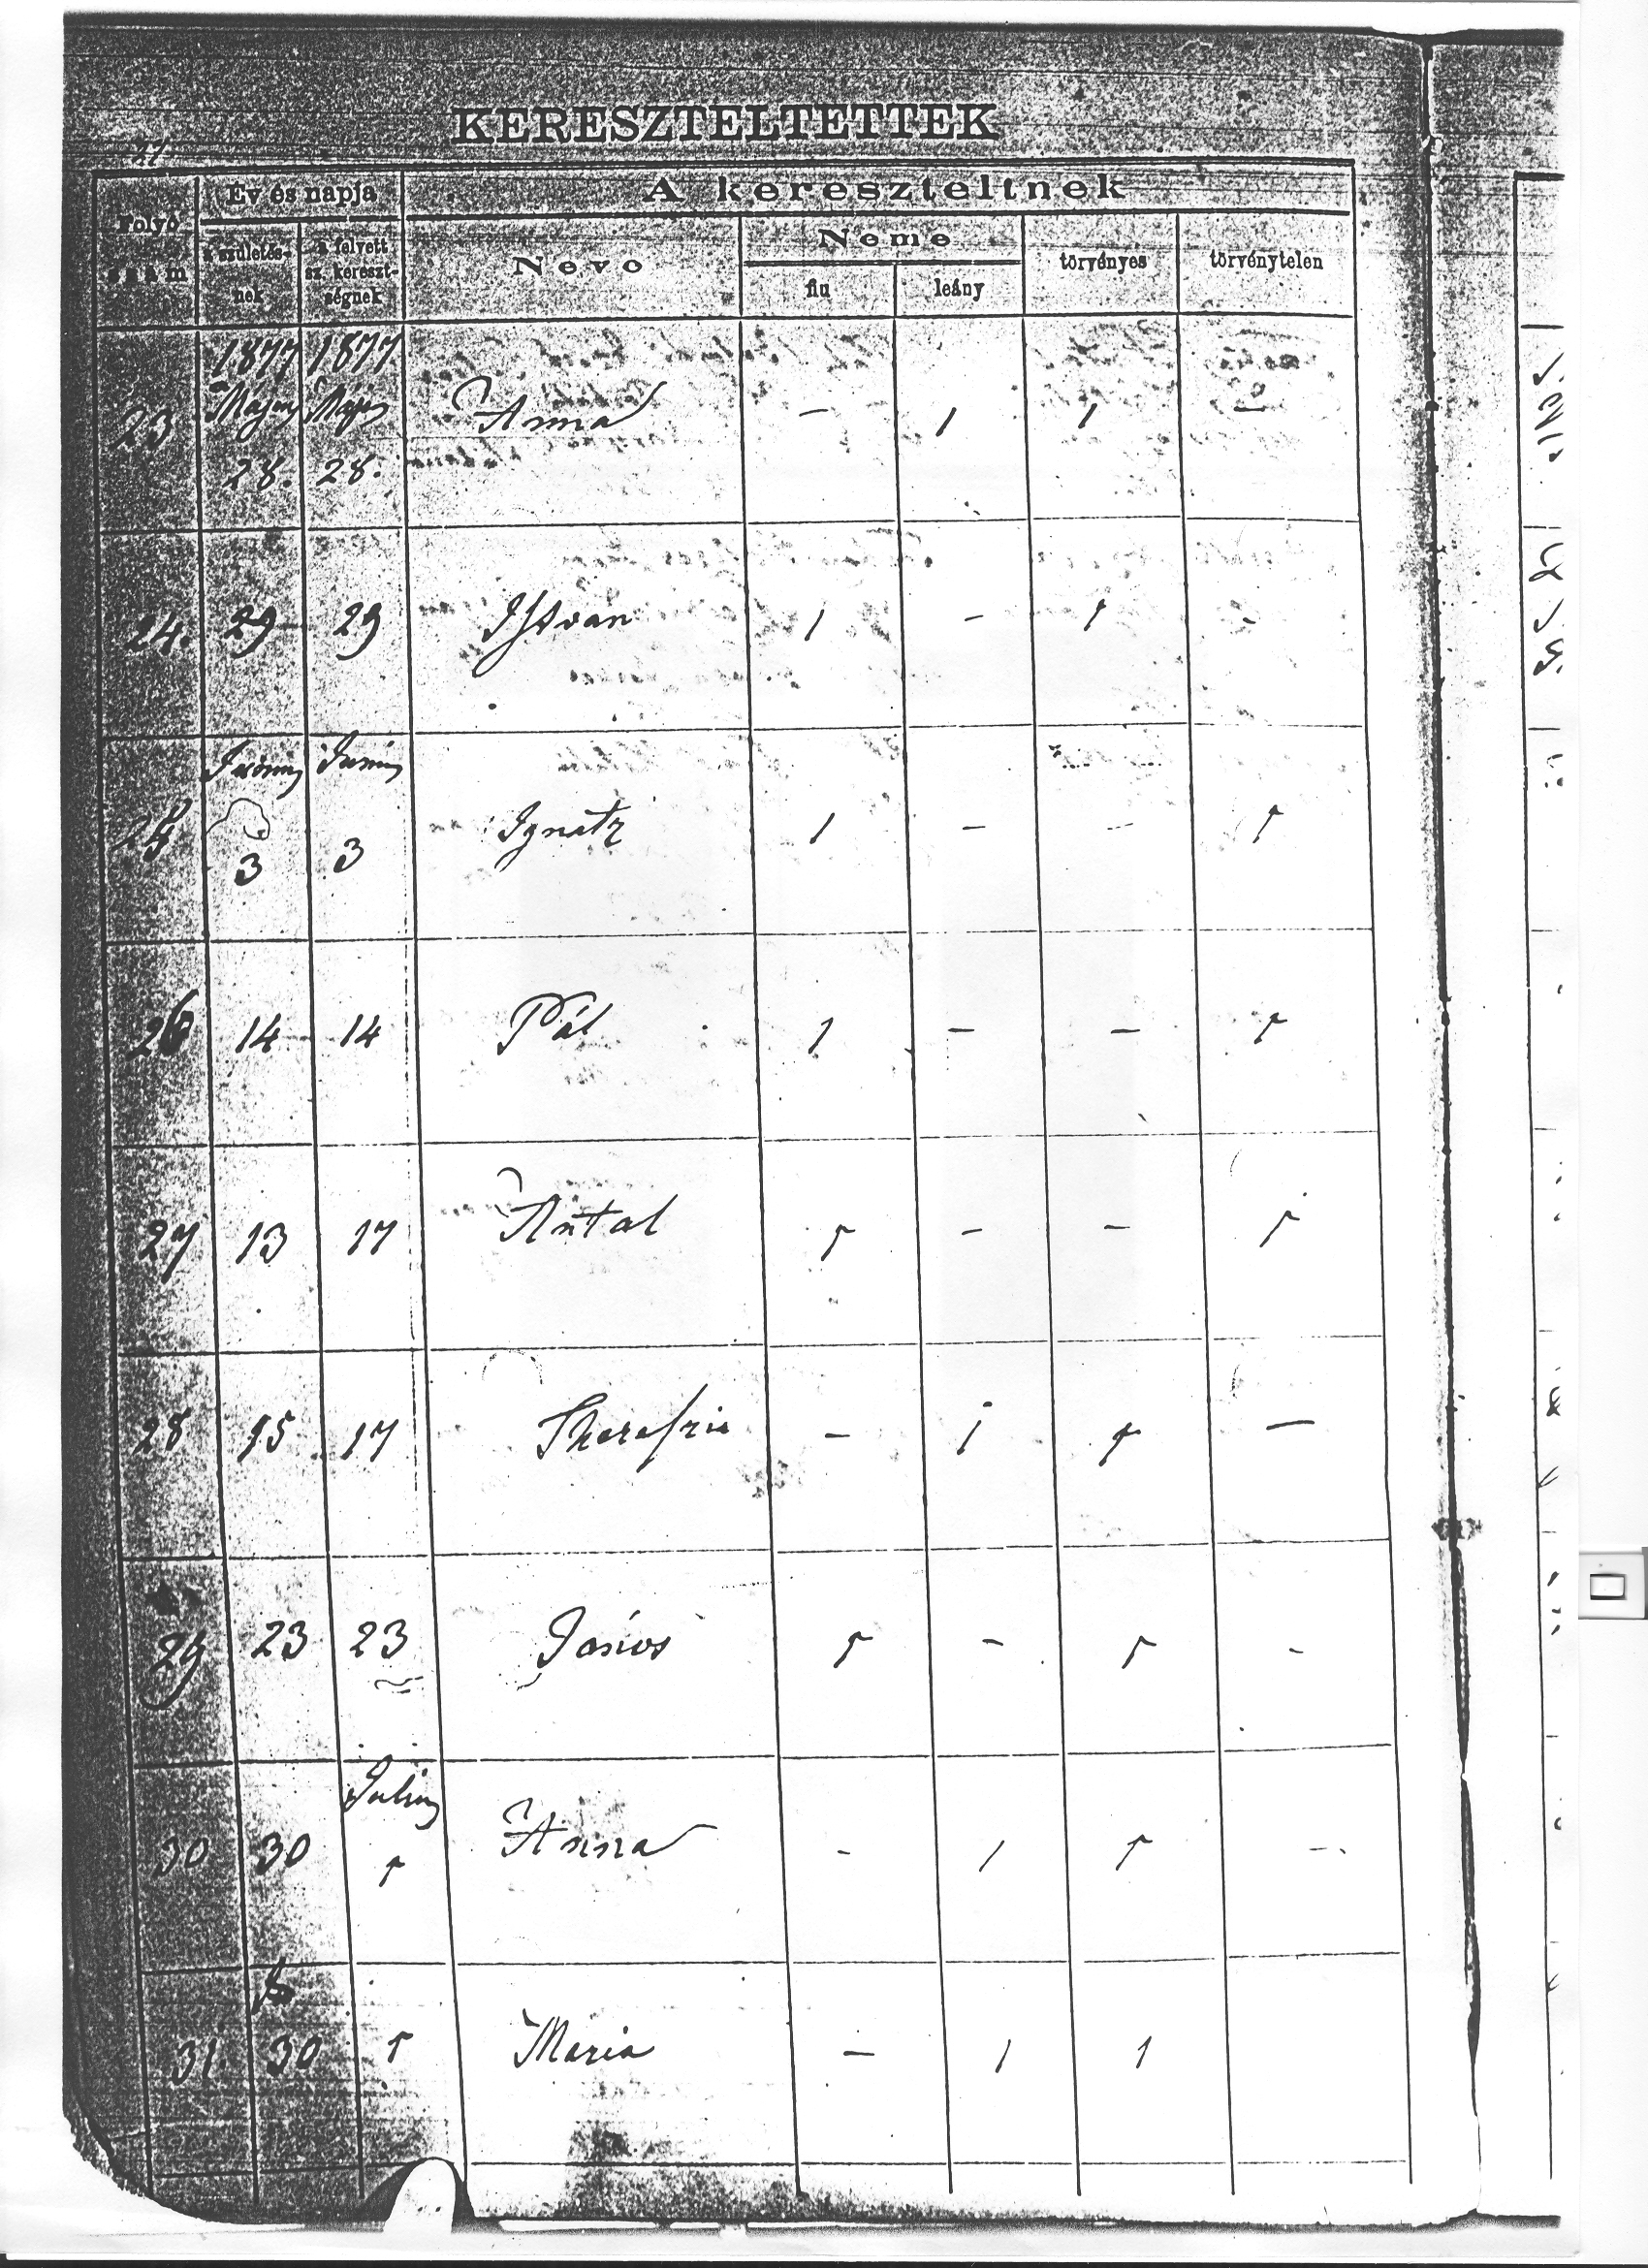 KERESZTELTETTEK
Év és napja
A kereszteltnek
Folyó szám
a születés-
nek
a felvett
sz. kereszt-
ségnek
Neve
Neme
fiu
leány
törvényes
törvénytelen
1877 1877
Május Május
23 28. 28. Anna – 1 1 –
24. 29 29 Istvan 1 – 1 -
Június Június
25 3 3 Ignátz 1 – – 1
26 14 14 Pál 1 – – 1
27 13 17 Antal 1 – – 1
28 15 17 – 1 1 –
29 23 23 János 1 – 1 -
Július
30 30 1 Anna - 1 1 -
31 30 1 Maria – 1 1